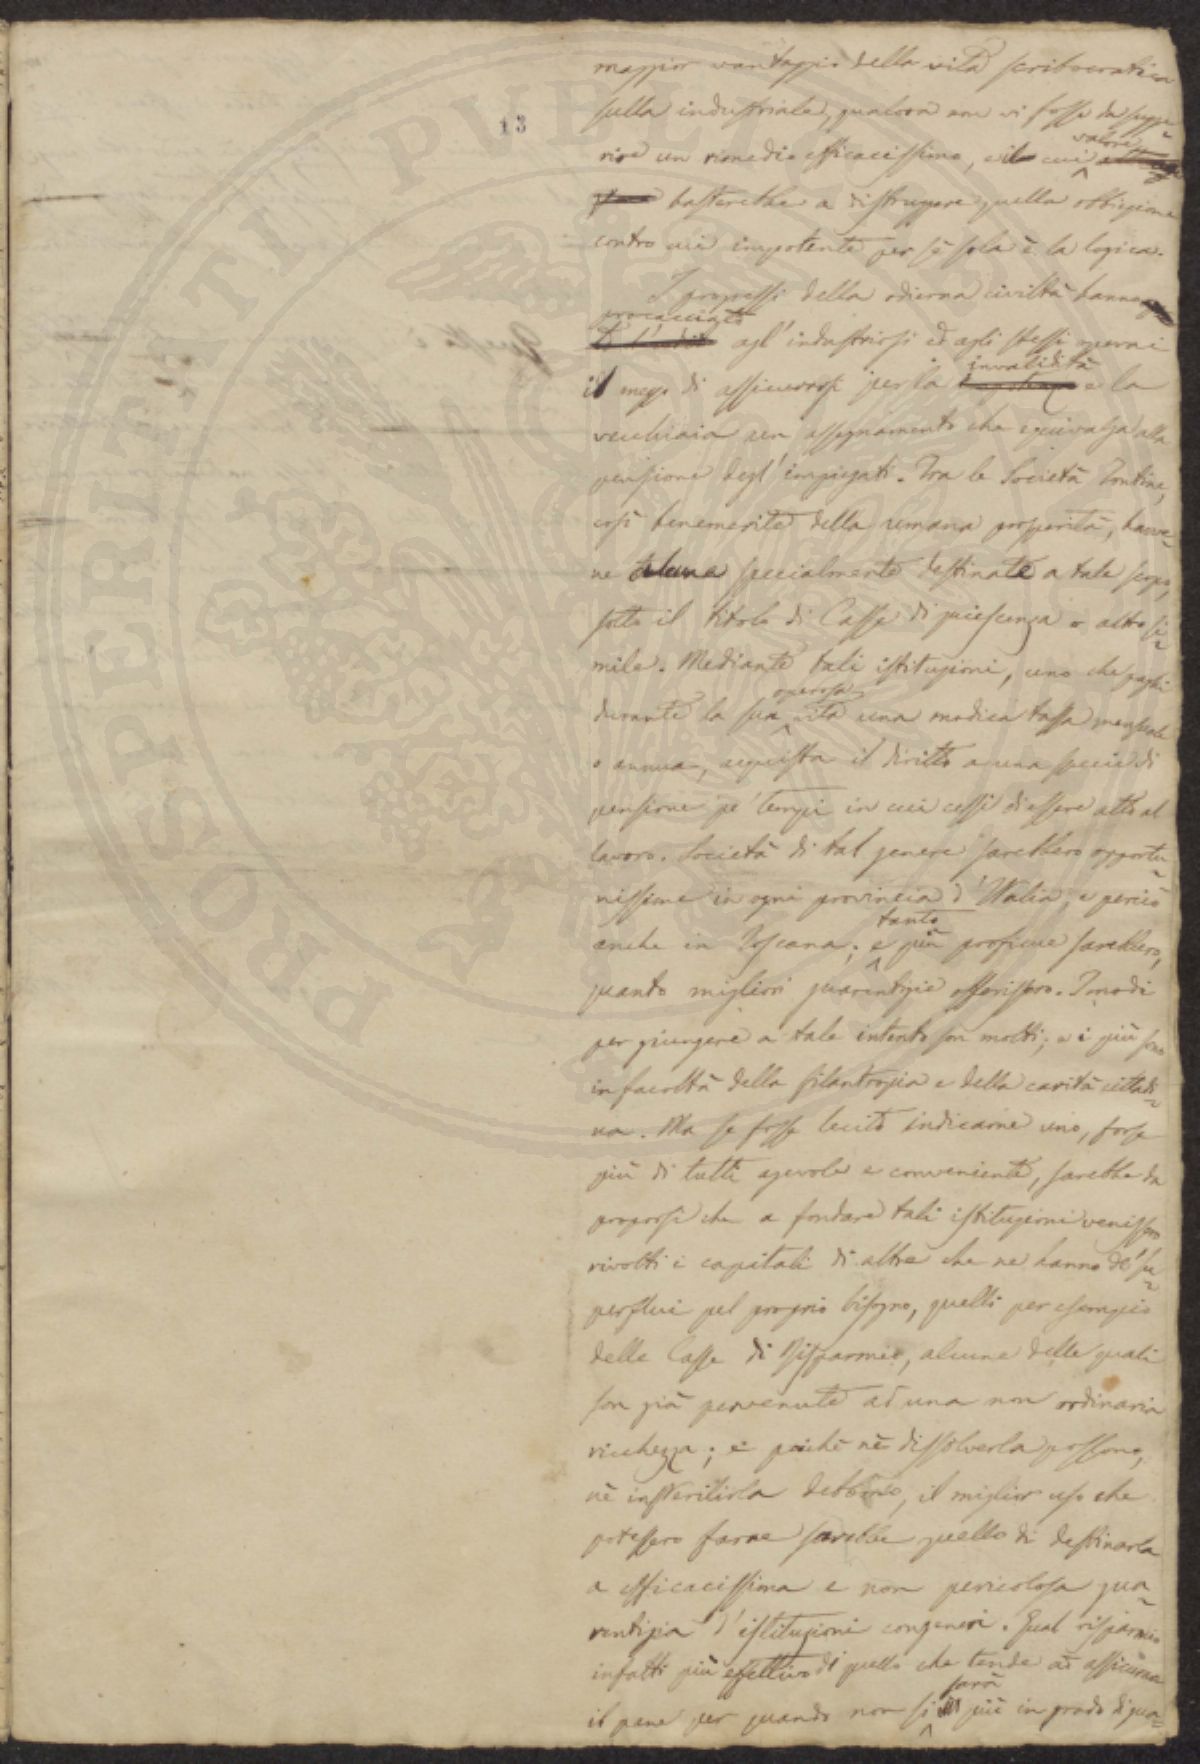 13
maggior vantaggio della vita scribocratica
sulla industriale, qualora non vi fosse da sugge=
rire un rimedio efficacissimo, e il cui valore
basterebbe a distruggere quella obbiezione
contro cui impotente per sè sola è la logica.
I progressi della odierna civiltà hanno
procacciato agl'industriosi ed agli stessi operai
il mezzo di assicurarsi per la invalidità e la
vecchiaia un assegnamento che equivalga alla
pensione degl'impiegati. Tra le Società Tontine,
così benemerite della umana prosperità, havve=
ne alcune specialmente destinate a tale scopo,
sotto il titolo di Casse di quiescenza o altro si=
mile. Mediante tali istituzioni, uno che paghi
durante la sua operosa vita una modica tassa mensuale
o annua, acquista il diritto a una specie di
pensione pe' tempi in cui cessi di essere atto al
lavoro. Società di tal genere sarebbero opportu=
nissime in ogni provincia d'Italia, e perciò
anche in Toscana; e tanto più proficue sarebbero,
quanto migliori guarentigie offerissero. I modi
per giungere a tale intento son molti; e i più sono
in facoltà della filantropia e della carità cittadi=
na. Ma se fosse lecito indicarne uno, forse
più di tutti agevole e conveniente, sarebbe da
proporsi che a fondare tali istituzioni venissero
rivolti i capitali di altre che ne hanno de' su=
perflui pel proprio bisogno, quelli per esempio
delle Casse di Risparmio, alcune delle quali
son già pervenute ad una non ordinaria
ricchezza; e poichè nè dissolverla possono,
nè insterilirla debbono, il miglior uso che
potessero farne sarebbe quello di destinarla
a efficacissima e non pericolosa gua=
rentigia d'istituzioni congeneri. Qual risparmio
infatti più effettivo di quello che tende ad assicurare
il pane per quando non si sarà più in grado di gua=